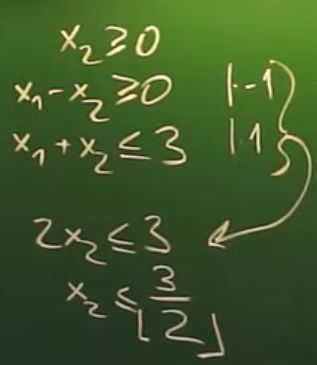 x₂ ≥ 0
x₁ - x₂ ≥ 0 |·-1
x₁ + x₂ ≤ 3 |·1
2x₂ ≤ 3
x₂ ≤ ⌊3/2⌋